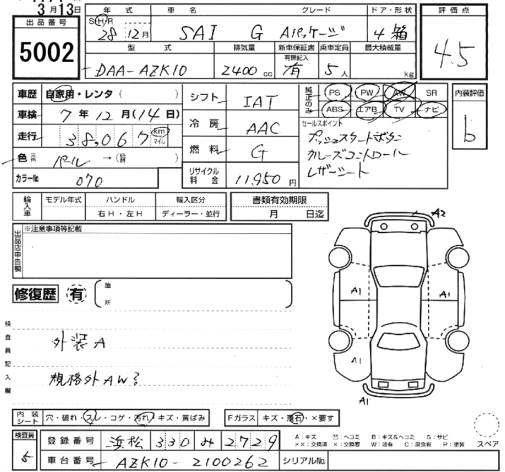 3月13日
出品番号
5002
年式 車名 グレード ドア・形状
S H R
28年12月 SAI G Aパッケージ 4 箱
型式 排気量 新車保証書 乗車定員 最大積載量
有無記入
DAA-AZK10 2400cc 有 5人 kg
評価点
4.5
車歴 自家用・レンタ( )
車検 7年12月(14日)
走行 38,067 km マイル
色 パール →( )
カラーNo 070
シフト IAT
冷房 AAC
燃料 G
リサイクル料金 11,950円
純正のみ PS PW AW SR
ABS エアB TV ナビ
セールスポイント
プッシュスタートボタン
クルーズコントロール
レザーシート
内装評価
b
輸入車 モデル年式 ハンドル 輸入区分
年 右H・左H ディーラー・並行
書類有効期限
月 日迄
出品店申告欄
※注意事項等記載
修復歴 有 箇所
検査員記入欄
外装A
規格外AW
A2
A1
A1
A1
A1
内装シート 穴・破れ・スレ・コゲ・汚れ・キズ・黄ばみ
Fガラス キズ・飛石・×要す
検査員
登録番号 浜松 330 み 2729
車台番号 AZK10-2100262
シリアルNo.
A:キズ 凹:ヘコミ B:キズ&ヘコミ G:サビ
××:交換済 ×:要交換 W:波 C:腐食有 P:要塗装
スペア